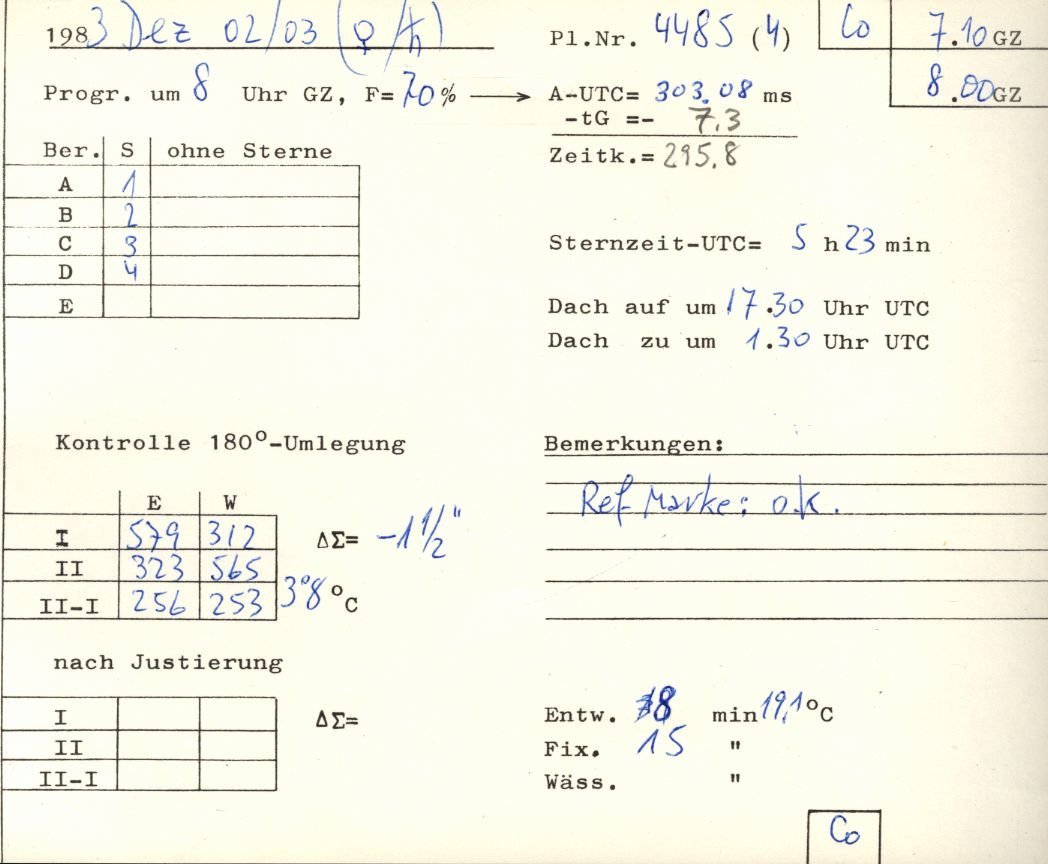 1983 Dez 02/03 (♀/♄) Pl.Nr. 4485 (4) Co 7.10 GZ
8.00 GZ
Progr. um 8 Uhr GZ, F= 70% ⟶ A-UTC= 303.08 ms
-tG =- 7.3
Zeitk.= 295.8
Ber. S ohne Sterne
A 1
B 2
C 3
D 4
E
Sternzeit-UTC= 5 h 23 min
Dach auf um 17.30 Uhr UTC
Dach zu um 1.30 Uhr UTC
Kontrolle 180°-Umlegung
E W
I 579 312 ΔΣ= -1 1/2"
II 323 565
II-I 256 253 3°8 °C
Bemerkungen:
Ref Marke: o.k.
nach Justierung
I ΔΣ=
II
II-I
Entw. 8 min 19,1°C
Fix. 15 "
Wäss. "
Co